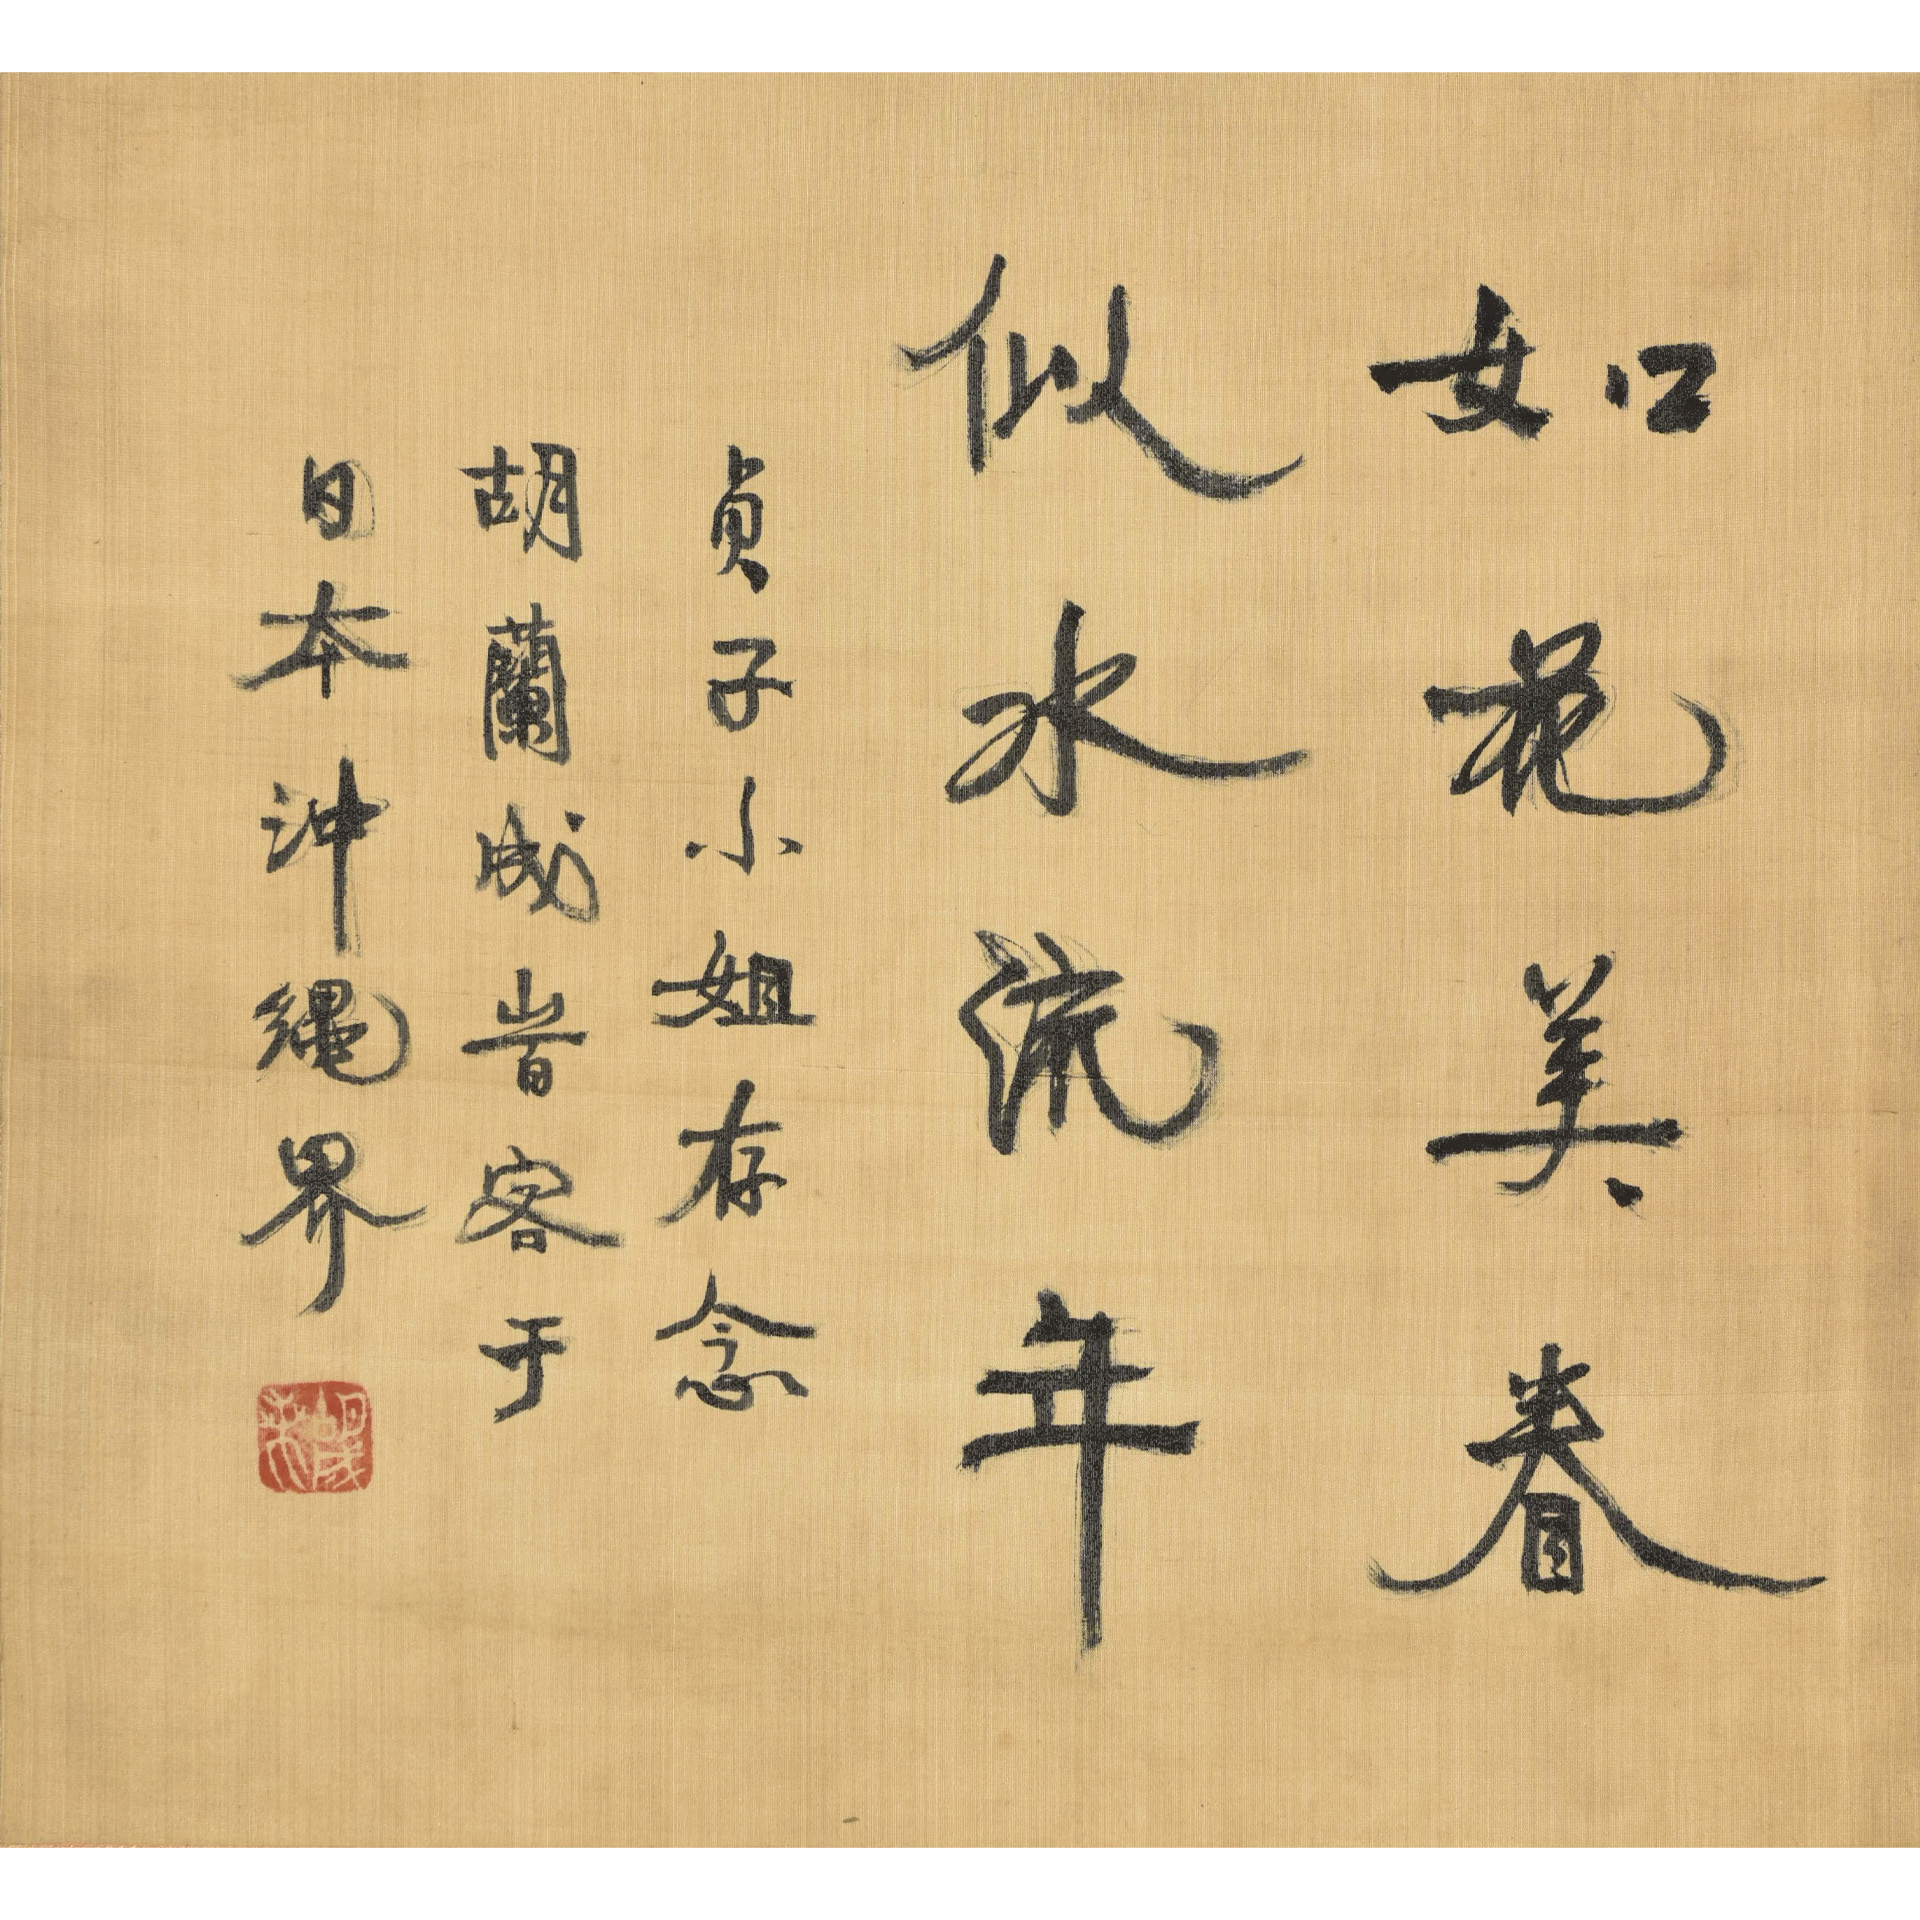 如花美眷
似水流年
貞子小姐存念
胡蘭成昔客于
日本沖繩界